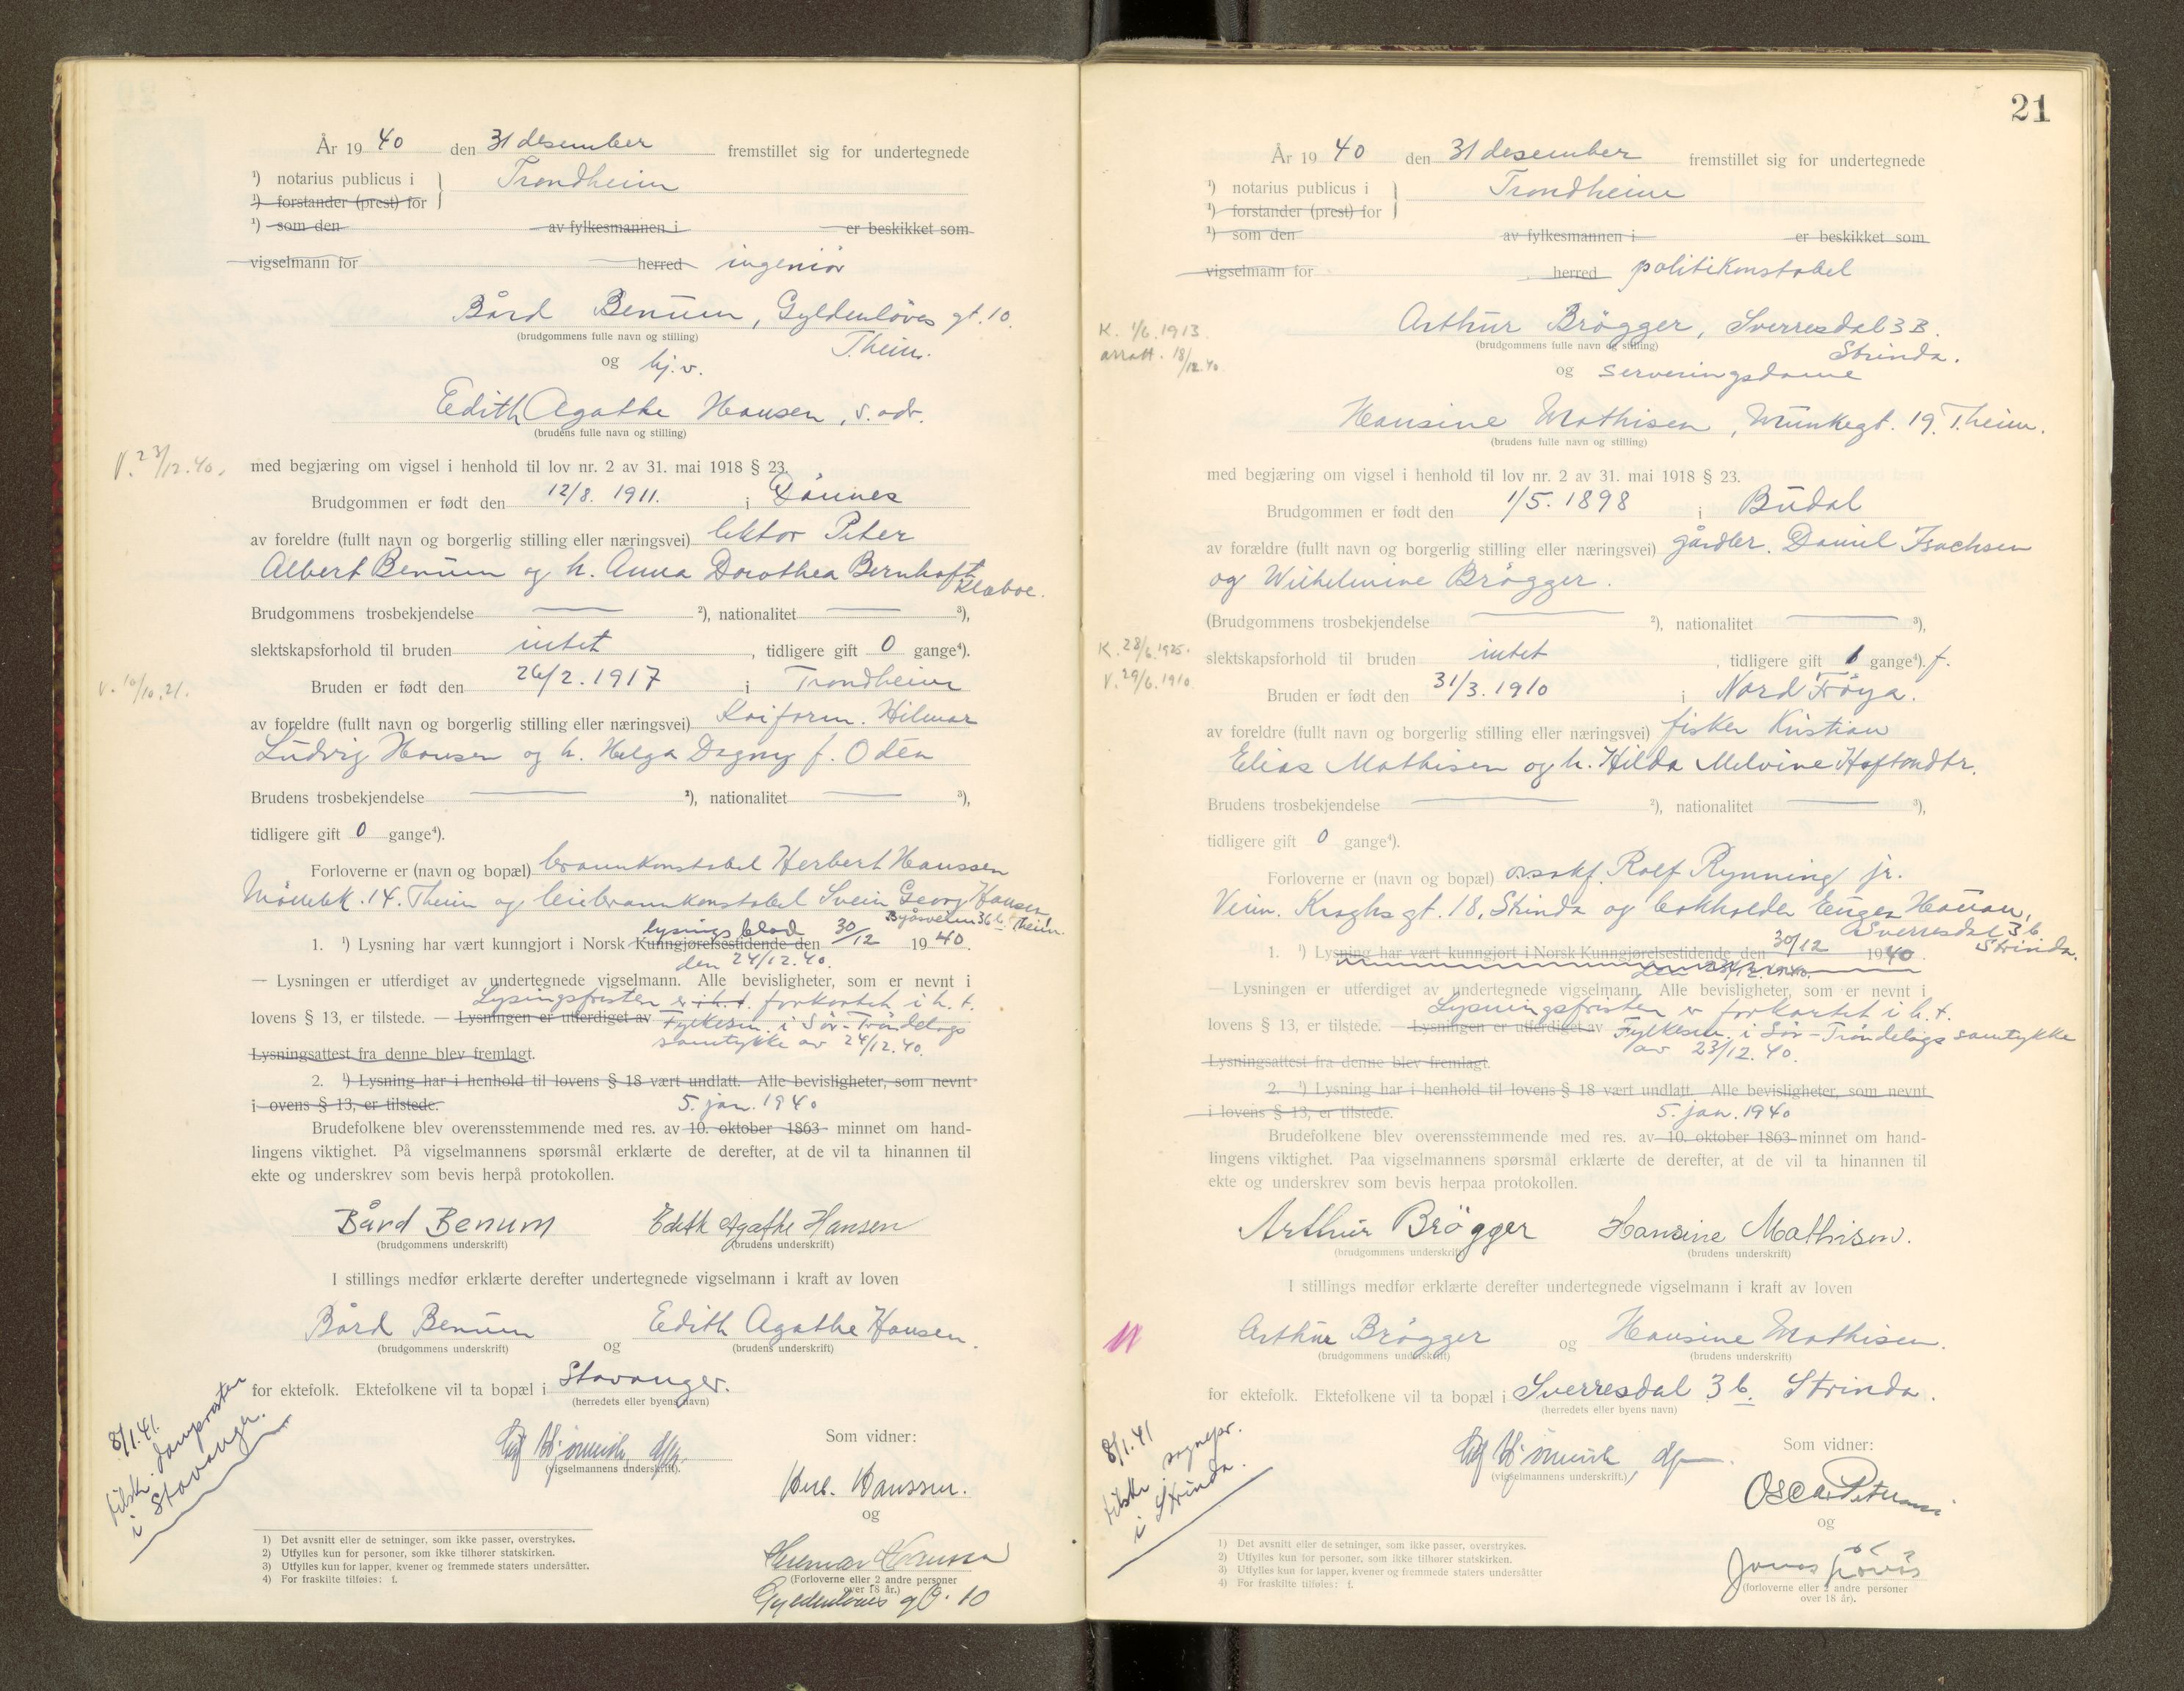 År 1940 den 31 desember fremstillet sig for undertegnede
¹) notarius publicus i Trondheim
¹) forstander (prest) for
¹) som den av fylkesmannen i er beskikket som
vigselmann for herred ingeniør
Bård Benum, Gyldenløves gt. 10.
(brudgommens fulle navn og stilling)
T.heim.
og hj.v.
Edith Agathe Hansen, s. adr.
(brudens fulle navn og stilling)
V. 23/12.40.
med begjæring om vigsel i henhold til lov nr. 2 av 31. mai 1918 § 23.
Brudgommen er født den 12/8. 1911. i Dønnes
av foreldre (fullt navn og borgerlig stilling eller næringsvei) lektor Peter
Albert Benum og h. Anna Dorothea Bernhoft
Klæboe.
Brudgommens trosbekjendelse — ²), nationalitet — ³),
slektskapsforhold til bruden intet, tidligere gift 0 gange⁴).
V. 10/10.21.
Bruden er født den 26/2. 1917 i Trondheim
av foreldre (fullt navn og borgerlig stilling eller næringsvei) Kaiform. Hilmar
Ludvig Hansen og h. Helga Dagny f. Odén
Brudens trosbekjendelse — ²), nationalitet — ³),
tidligere gift 0 gange⁴).
Forloverne er (navn og bopæl) brannkonstabel Herbert Hanssen
Møllebk. 14. Theim og leiebrannkonstabel Svein Georg Hansen
Byåsveien 36 b. Theim.
lysingsblad
1. ¹) Lysning har vært kunngjort i Norsk Kunngjørelsestidende den 30/12 1940.
den 24/12.40.
— Lysningen er utferdiget av undertegnede vigselmann. Alle bevisligheter, som er nevnt i
Lysingsfristen er i h. t. forkortet i h. t.
lovens § 13, er tilstede. — Lysningen er utferdiget av Fylkesm. i Sør-Trøndelags
samtykke av 24/12.40.
Lysningsattest fra denne blev fremlagt.
2. ¹) Lysning har i henhold til lovens § 18 vært undlatt. Alle bevisligheter, som nevnt
i ovens § 13, er tilstede.
5. jan. 1940
Brudefolkene blev overensstemmende med res. av 10. oktober 1863 minnet om hand-
lingens viktighet. På vigselmannens spørsmål erklærte de derefter, at de vil ta hinannen til
ekte og underskrev som bevis herpå protokollen.
Bård Benum Edith Agathe Hansen
(brudgommens underskrift) (brudens underskrift)
I stillings medfør erklærte derefter undertegnede vigselmann i kraft av loven
Bård Benum og Edith Agathe Hansen.
(brudgommens underskrift) (brudens underskrift)
for ektefolk. Ektefolkene vil ta bopæl i Stavanger.
(herredets eller byens navn)
8/1.41.
tilskr. domprosten
i Stavanger.
(vigselmannens underskrift).
Som vidner:
Herb. Hanssen.
og
Hilmar Hansen
(Forloverne eller 2 andre personer
over 18 år.)
Gyldenløves gt. 10
1) Det avsnitt eller de setninger, som ikke passer, overstrykes.
2) Utfylles kun for personer, som ikke tilhører statskirken.
3) Utfylles kun for lapper, kvener og fremmede staters undersåtter.
4) For fraskilte tilføies: f.
21
År 1940 den 31 desember fremstillet sig for undertegnede
¹) notarius publicus i Trondheim
¹) forstander (prest) for
¹) som den av fylkesmannen i er beskikket som
vigselmann for herred politikonstabel
Arthur Brøgger, Sverresdal 3 B.
(brudgommens fulle navn og stilling)
Strinda.
K. 1/6.1913.
18/12.40
og serveringsdame
Hansine Mathisen, Munkegt. 19. T.heim.
(brudens fulle navn og stilling)
med begjæring om vigsel i henhold til lov nr. 2 av 31. mai 1918 § 23.
Brudgommen er født den 1/5. 1898 i Budal
av forældre (fullt navn og borgerlig stilling eller næringsvei) gårdbr. Daniel Isachsen
og Wilhelmine Brøgger.
(Brudgommens trosbekjendelse — ²), nationalitet — ³),
K. 28/6.1925.
slektskapsforhold til bruden intet, tidligere gift 1 gange⁴). f.
V. 29/6.1910.
Bruden er født den 31/3. 1910 i Nord Frøya.
av foreldre (fullt navn og borgerlig stilling eller næringsvei) fisker Kristian
Elias Mathisen og h. Hilda Melvine Haftondtr.
Brudens trosbekjendelse — ²), nationalitet — ³),
tidligere gift 0 gange⁴).
Forloverne er (navn og bopæl) Rolf Rynning jr.
Veim. Kroghs gt. 18, Strinda og bokholder Eugen Hauan,
Sverresdal 3 b
Strinda.
1. ¹) Lysning har vært kunngjort i Norsk Kunngjørelsestidende den 30/12 1940.
— Lysningen er utferdiget av undertegnede vigselmann. Alle bevisligheter, som er nevnt i
Lysningsfristen er forkortet i h. t.
lovens § 13, er tilstede. — Lysningen er utferdiget av Fylkesm. i Sør-Trøndelags samtykke
av 23/12.40.
Lysningsattest fra denne blev fremlagt.
2. ¹) Lysning har i henhold til lovens § 18 vært undlatt. Alle bevisligheter, som nevnt
i lovens § 13, er tilstede.
5. jan. 1940
Brudefolkene blev overensstemmende med res. av 10. oktober 1863 minnet om hand-
lingens viktighet. Paa vigselmannens spørsmål erklærte de derefter, at de vil ta hinannen til
ekte og underskrev som bevis herpaa protokollen.
Arthur Brøgger Hansine Mathisen.
(brudgommens underskrift) (brudens underskrift)
I stillings medfør erklærte derefter undertegnede vigselmann i kraft av loven
Arthur Brøgger og Hansine Mathisen.
(brudgommens underskrift) (brudens underskrift)
for ektefolk. Ektefolkene vil ta bopæl i Sverresdal 3 b. Strinda.
(herredets eller byens navn)
8/1.41
tilskr. sognepr.
i Strinda.
(vigselmannens underskrift.)
Som vidner:
og
(forloverne eller 2 andre personer
over 18 år).
1) Det avsnitt eller de setninger, som ikke passer, overstrykes.
2) Utfylles kun for personer, som ikke tilhører statskirken.
3) Utfylles kun for lapper, kvener og fremmede staters undersåtter
4) For fraskilte tilføies: f.